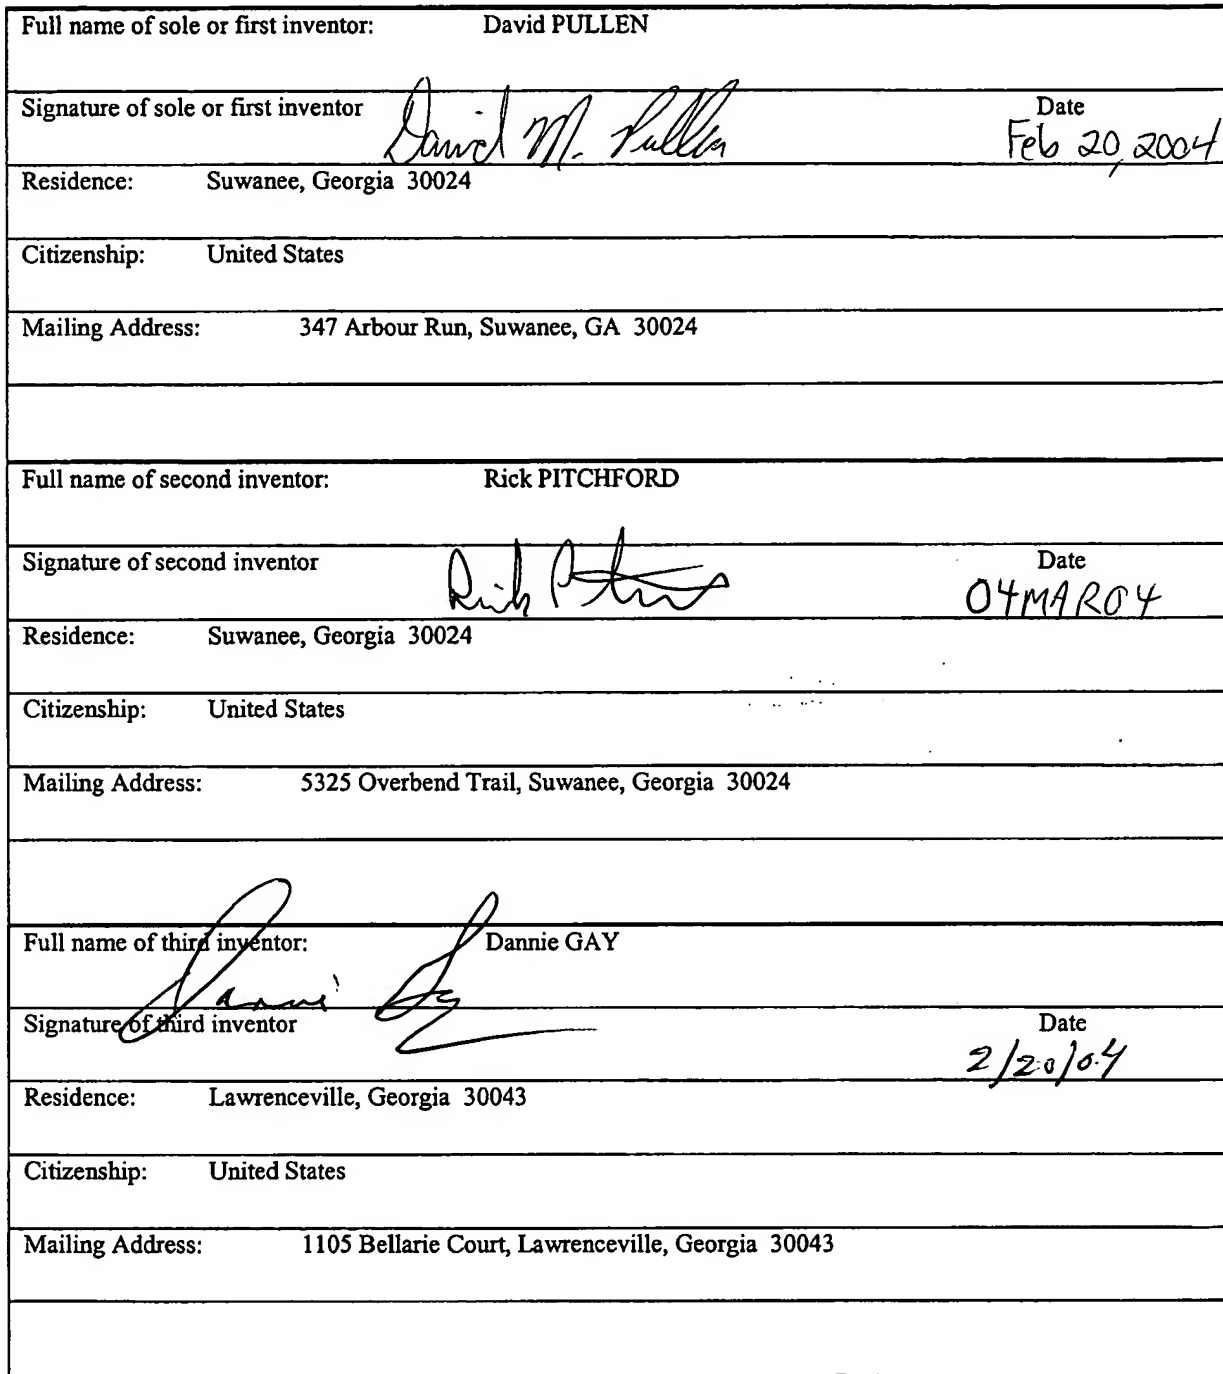 Full name of sole or first inventor: David PULLEN
Signature of sole or first inventor David M. Pullen Date
Feb 20, 2004
Residence: Suwanee, Georgia 30024
Citizenship: United States
Mailing Address: 347 Arbour Run, Suwanee, GA 30024
Full name of second inventor: Rick PITCHFORD
Signature of second inventor Rick Date
04MAR04
Residence: Suwanee, Georgia 30024
Citizenship: United States
Mailing Address: 5325 Overbend Trail, Suwanee, Georgia 30024
Full name of third inventor: Dannie GAY
Dannie Gay
Signature of third inventor Date
2/20/04
Residence: Lawrenceville, Georgia 30043
Citizenship: United States
Mailing Address: 1105 Bellarie Court, Lawrenceville, Georgia 30043